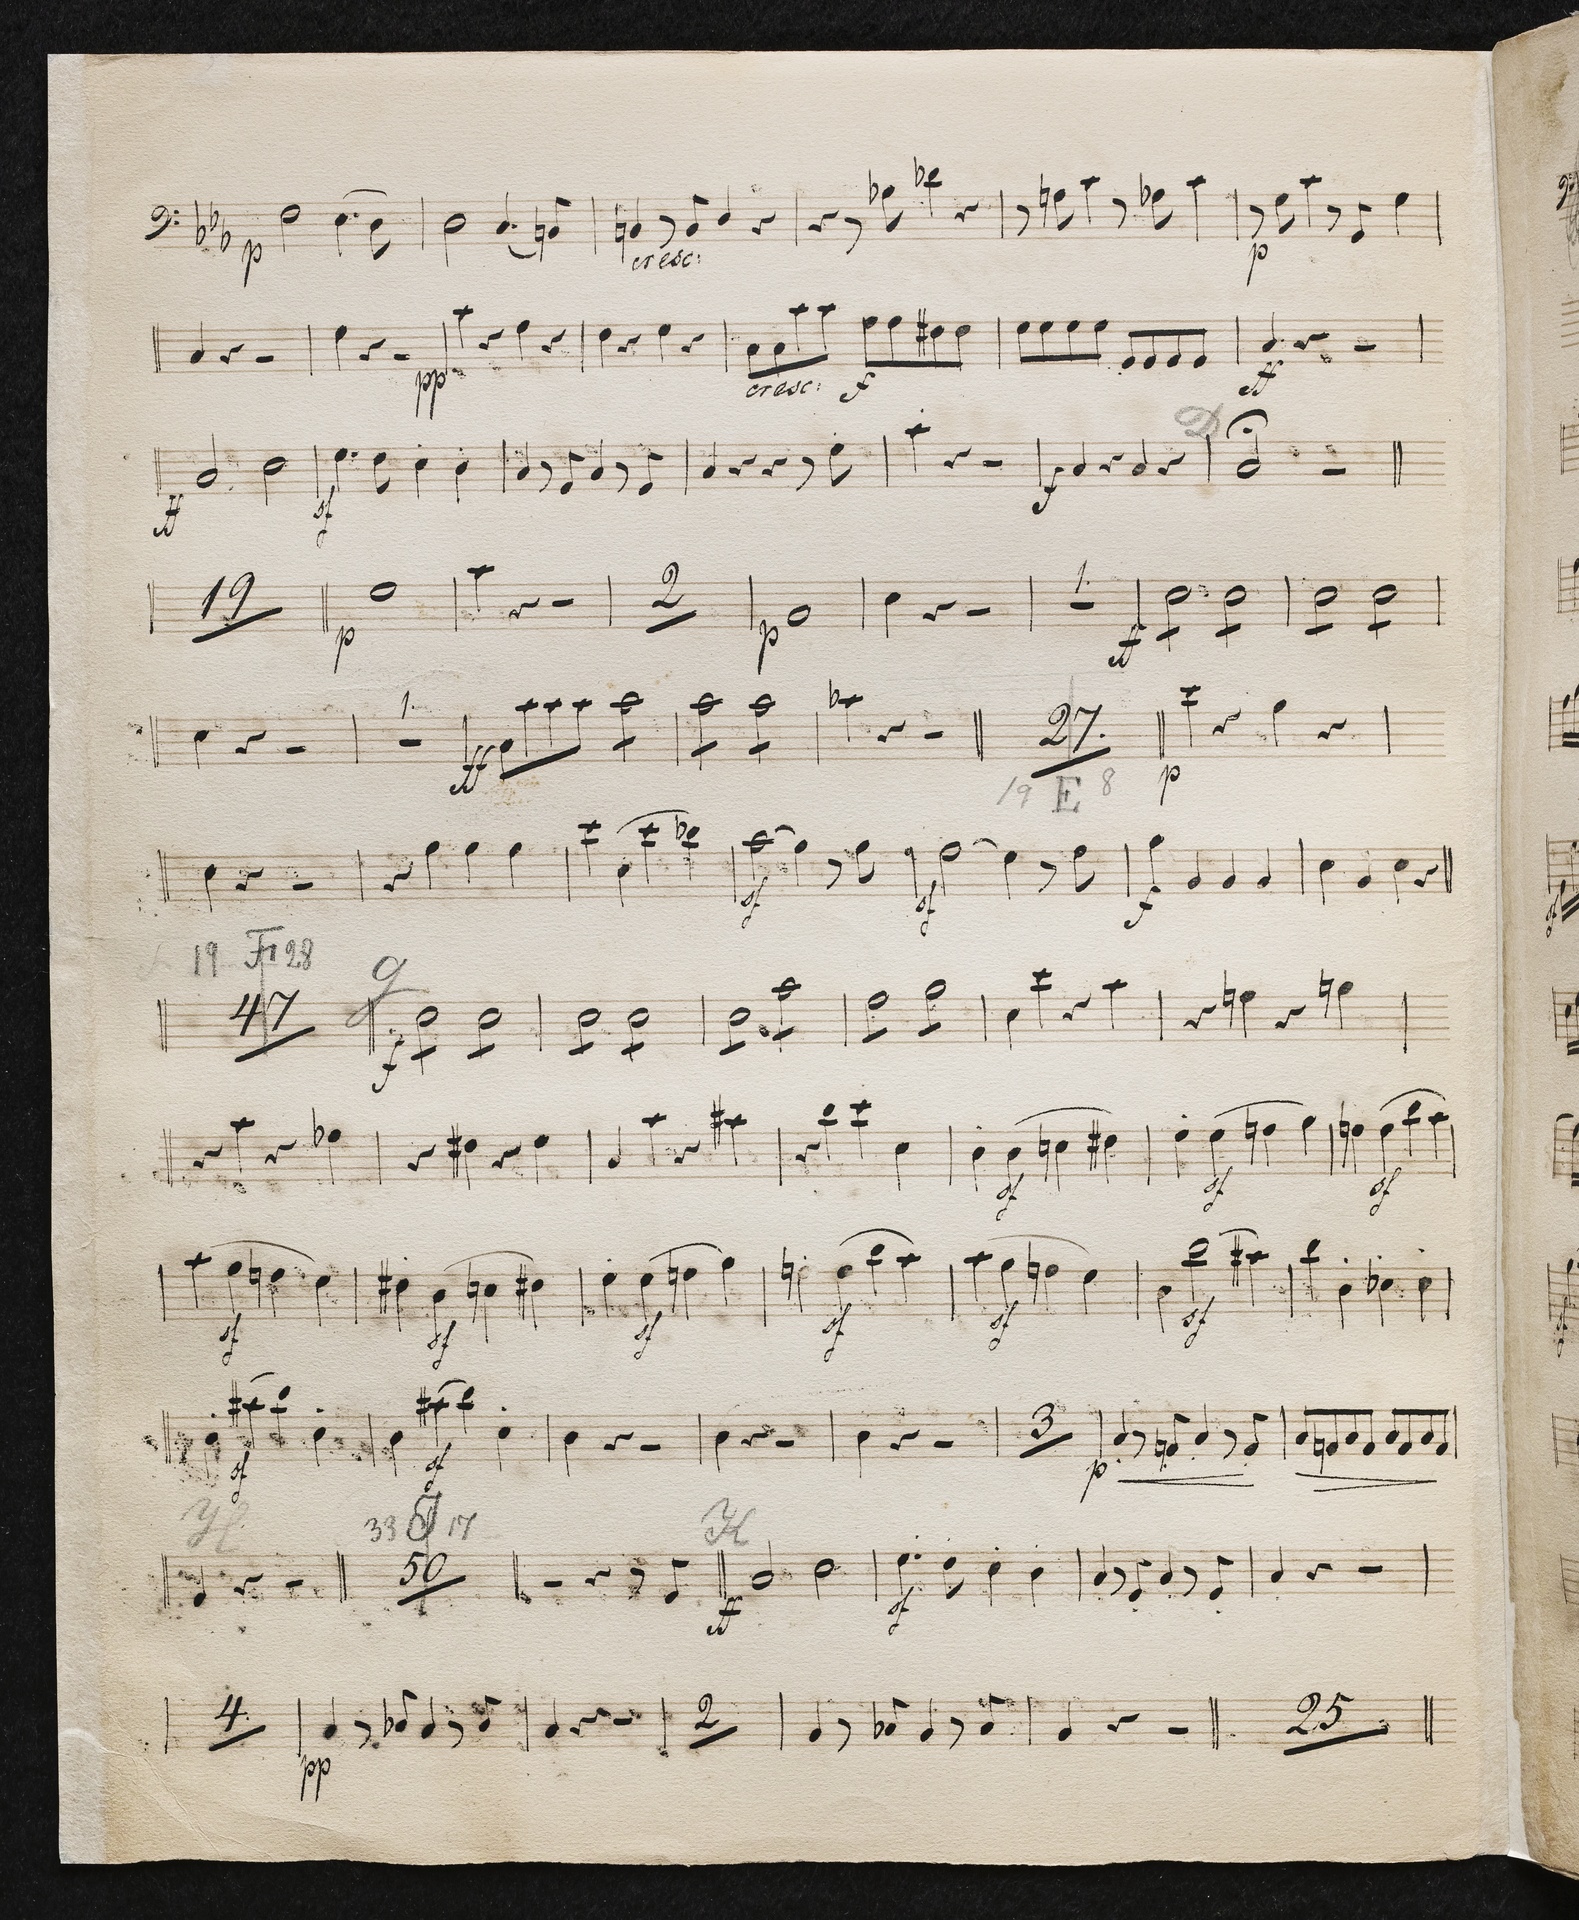 p cresc: p
pp cresc: f ff
D
ff sf f
19 p 2 p 1. ff
1. ff 27. p
19 E 8
sf sf f
19 F 28 G
47 f
sf sf sf
sf sf sf sf sf sf
sf sf 3 p
H 33 J 17 K
50 ff sf
4. pp 2 25